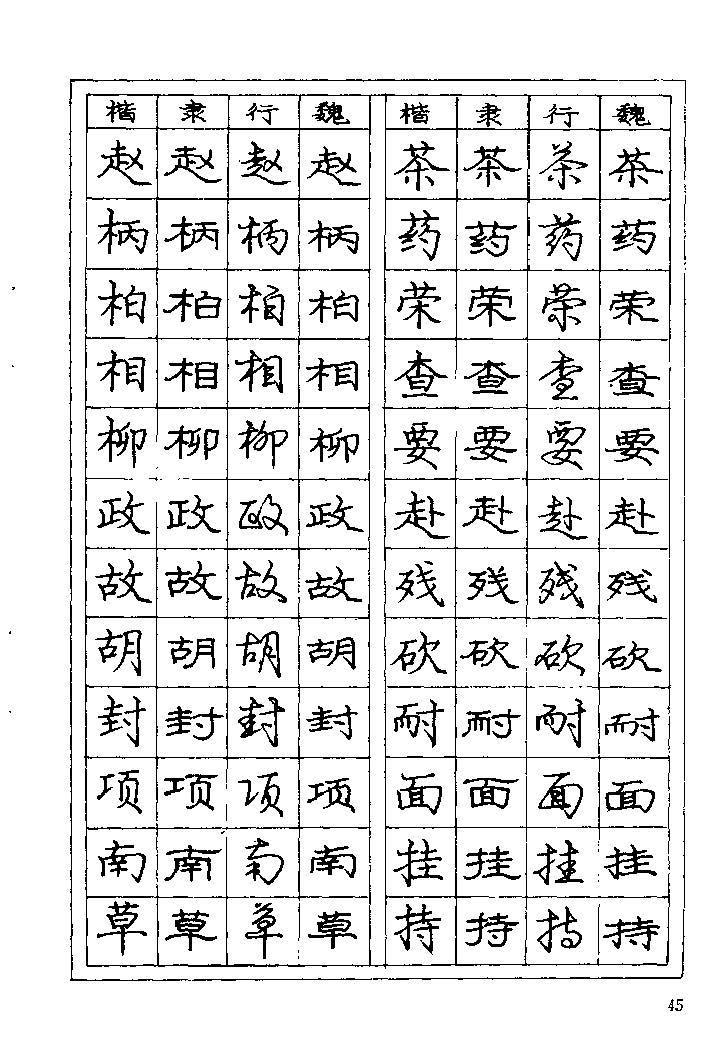 楷 隶 行 魏 楷 隶 行 魏
赵 赵 赵 赵 茶 茶 茶 茶
柄 柄 柄 柄 药 药 药 药
柏 柏 柏 柏 荣 荣 荣 荣
相 相 相 相 查 查 查 查
柳 柳 柳 柳 要 要 要 要
政 政 政 政 赴 赴 赴 赴
故 故 故 故 残 残 残 残
胡 胡 胡 胡 砍 砍 砍 砍
封 封 封 封 耐 耐 耐 耐
项 项 项 项 面 面 面 面
南 南 南 南 挂 挂 挂 挂
草 草 草 草 持 持 持 持
45